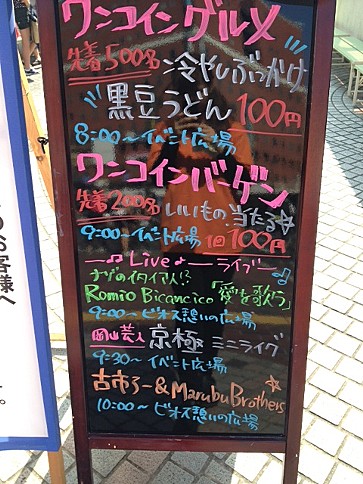 ワンコイングルメ
先着500名 冷やしぶっかけ
黒豆うどん 100円
8:00〜イベント広場
ワンコインバーゲン
先着200名 いいもの当たる☆
9:00〜イベント広場 1回100円
♫Live♪ーライブー♫
ナゾのイタイア人!?
Romio Bicancico「愛を歌う」
9:00〜ビオス憩いの広場
岡山芸人 京極 ミニライヴ
9:30〜イベント広場
古市ろー&Marubu Brothers☆
10:00〜ビオス憩いの広場
お客様へ